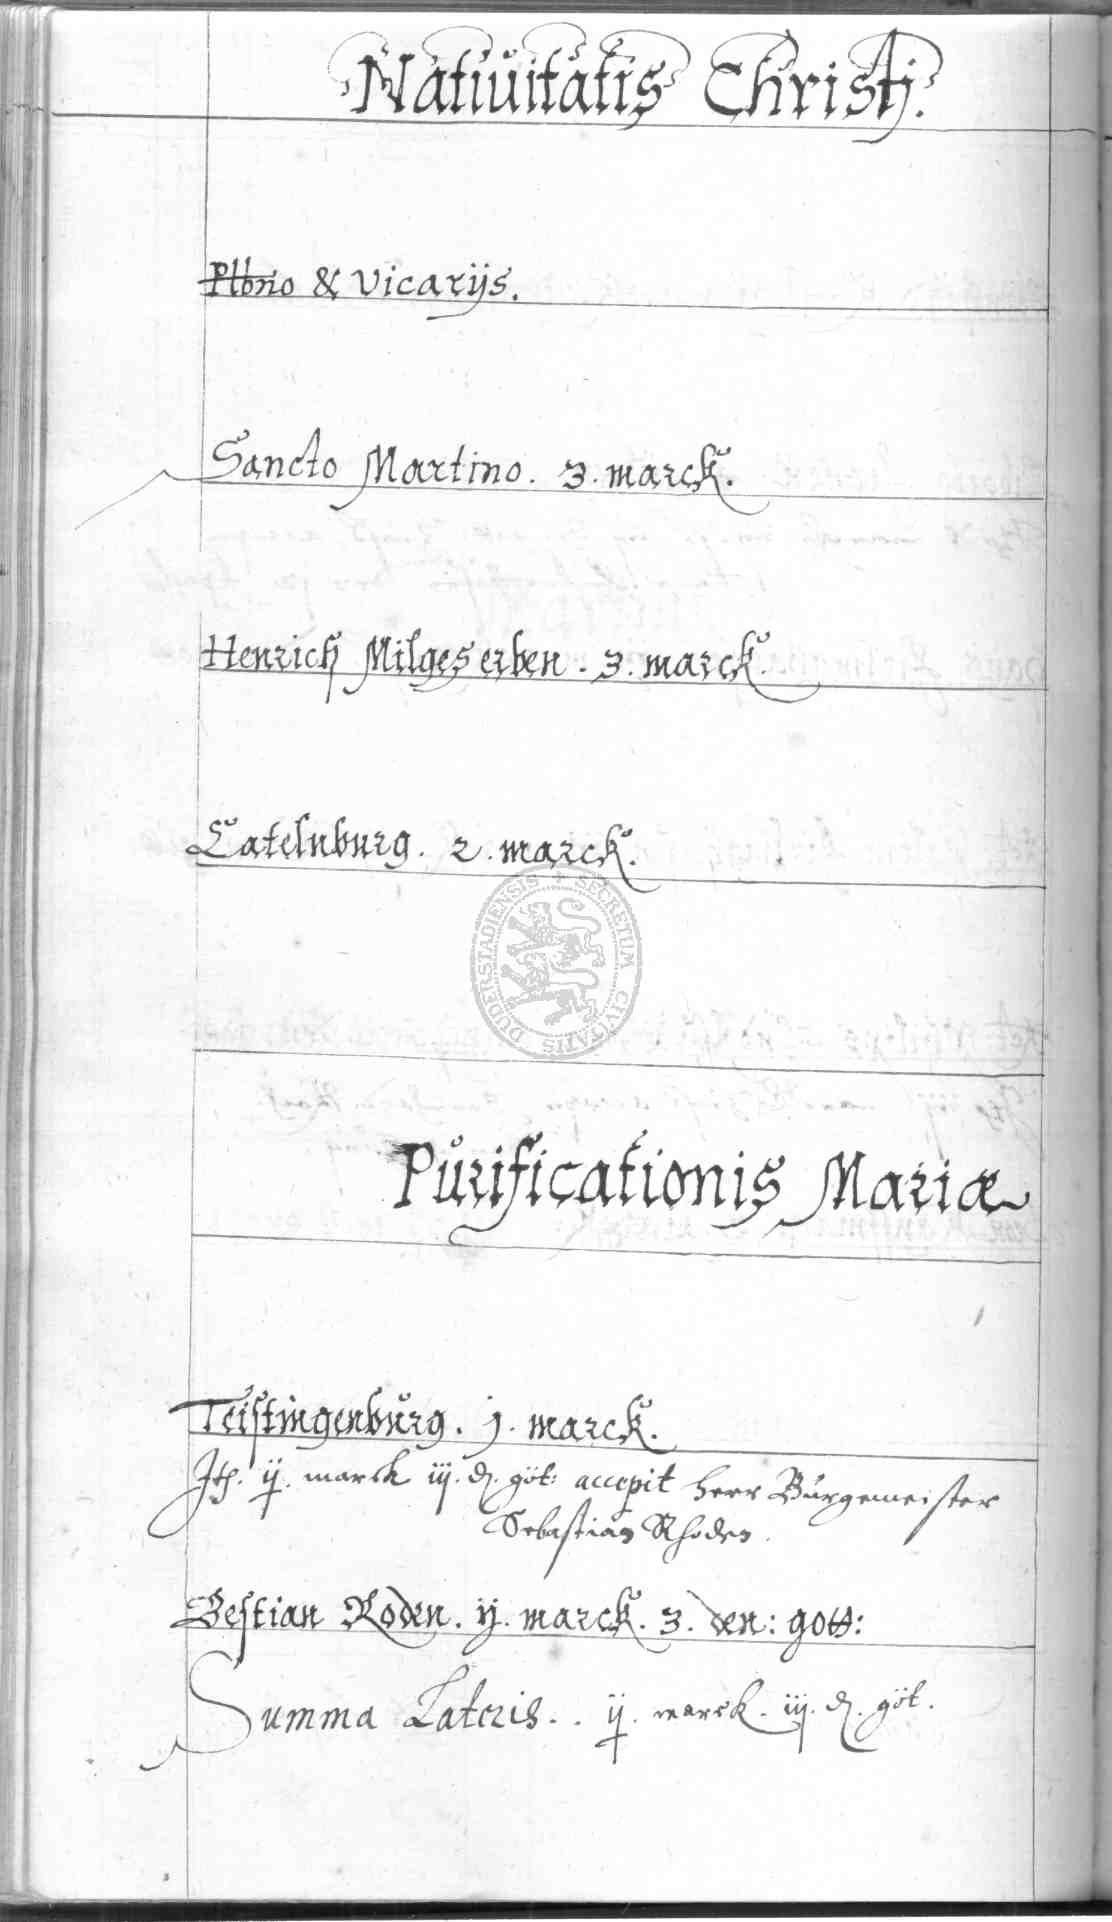 Natiuitatis Christj.
Plbno & vicarijs.
Sancto Martino. 3. marck.
Henrich Milges erben. 3. marck.
Catelnburg. 2. marck.
DUDERSTADIENSIS + SECRETUM CIVITATIS
Purificationis Mariæ
Teistingenburg. j. marck.
ij. marck iij. d. göt: accepit herr Bürgemeister
Sebastian Rhoden.
Bestian Roden. ij. marck. 3. den: gott:
Summa Lateris.. ij. marck. iij. d. göt.